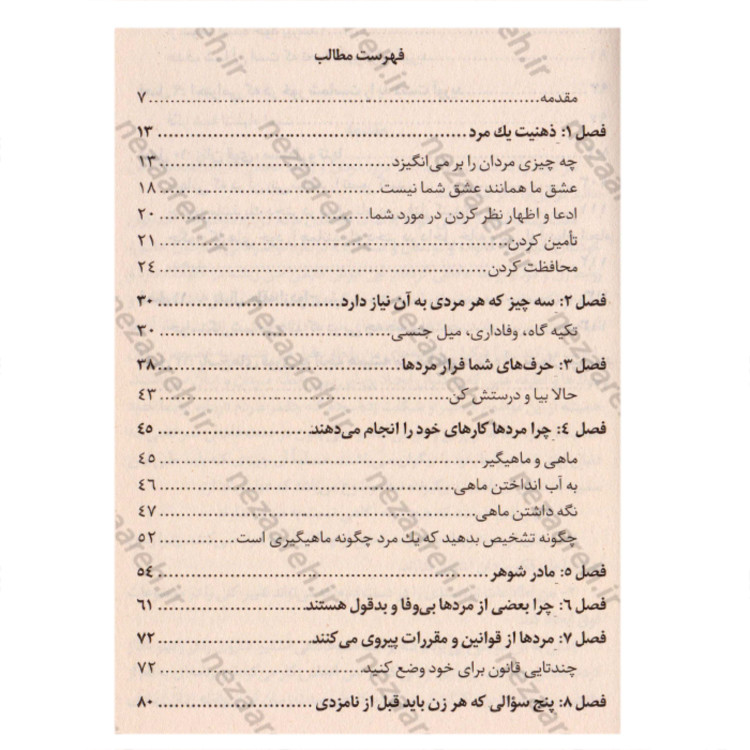 فهرست مطالب
مقدمه........................................٧
فصل ١: ذهنیت یك مرد........................................١٣
چه چیزی مردان را بر می‌انگیزد........................................١٣
عشق ما همانند عشق شما نیست........................................١٨
ادعا و اظهار نظر کردن در مورد شما........................................٢٠
تأمین کردن........................................٢١
محافظت کردن........................................٢٤
فصل ٢: سه چیز که هر مردی به آن نیاز دارد........................................٣٠
تکیه گاه، وفاداری، میل جنسی........................................٣٠
فصل ٣: حرف‌های شما فرار مردها........................................٣٨
حالا بیا و درستش کن........................................٤٣
فصل ٤: چرا مردها کارهای خود را انجام می‌دهند........................................٤٥
ماهی و ماهیگیر........................................٤٥
به آب انداختن ماهی........................................٤٦
نگه داشتن ماهی........................................٤٧
چگونه تشخیص بدهید که یك مرد چگونه ماهیگیری است........................................٥٢
فصل ٥: مادر شوهر........................................٥٤
فصل ٦: چرا بعضی از مردها بی‌وفا و بدقول هستند........................................٦١
فصل ٧: مردها از قوانین و مقررات پیروی می‌کنند........................................٧٢
چندتایی قانون برای خود وضع کنید........................................٧٢
فصل ٨: پنج سؤالی که هر زن باید قبل از نامزدی........................................٨٠
nezaareh.ir